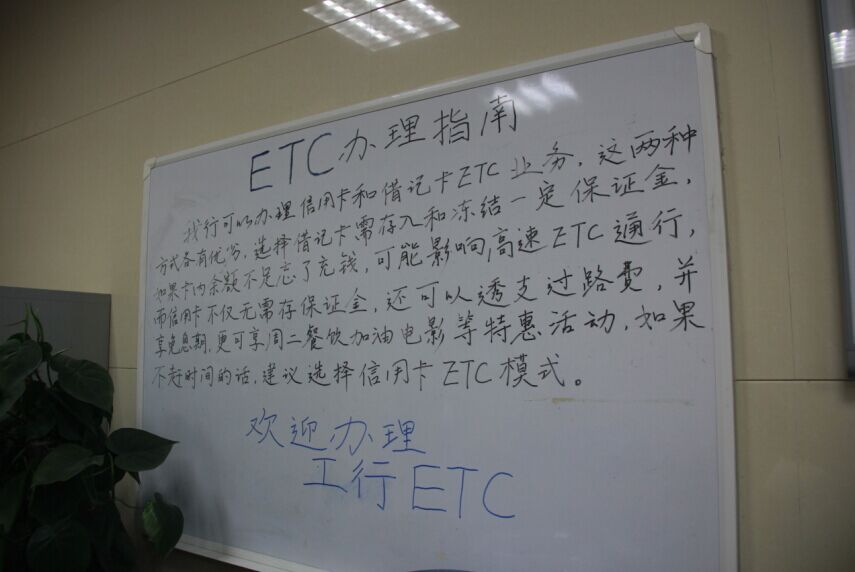 ETC办理指南
我行可以办理信用卡和借记卡ETC业务，这两种
方式各有优劣，选择借记卡需存入和冻结一定保证金，
如果卡内余额不足忘了充钱，可能影响高速ETC通行，
而信用卡不仅无需存保证金，还可以透支过路费，并
享免息期，更可享周二餐饮加油电影等特惠活动，如果
不赶时间的话，建议选择信用卡ETC模式。
欢迎办理
工行ETC